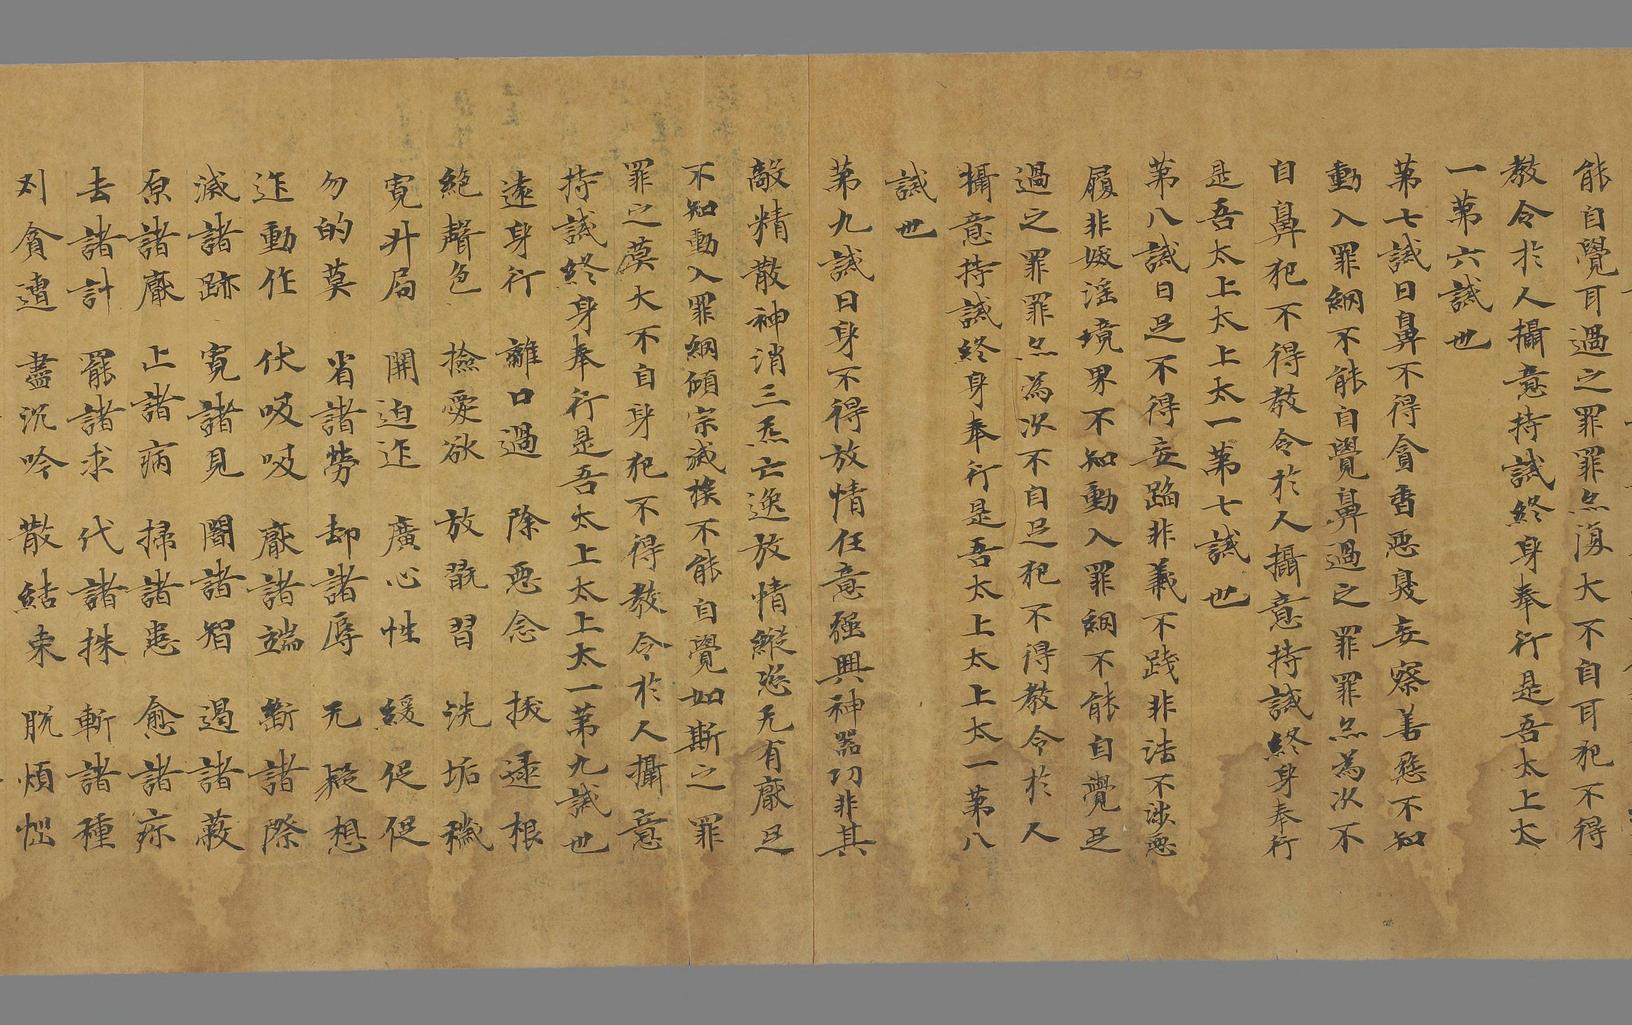 能自覺耳過之罪罪無復大不自耳犯不得
教令於人攝意持誡終身奉行是吾太上太
一第六誡也
第七誡曰鼻不得貪香惡臭妄察善惡不知
動入罪網不能自覺鼻過之罪罪無為次不
自鼻犯不得教令於人攝意持誡終身奉行
是吾太上太上太一第七誡也
第八誡曰足不得妄蹈非義不踐非法不涉惡
履非婬境界不知動入罪網不能自覺足
過之罪罪無為次不自足犯不得教令於人
攝意持誡終身奉行是吾太上太上太一第八
誡也
第九誡曰身不得放情任意強興神器切非其
敵精散神消三炁亡逸放情縱恣无有厭足
不知動入罪網傾宗滅族不能自覺如斯之罪
罪之莫大不自身犯不得教令於人攝意
持誡終身奉行是吾太上太上太一第九誡也
遠身行 離口過 除惡念 拔逯根
絕聲色 撿愛欲 放翫習 洗垢穢
寬升局 開迫迮 廣心性 緩促促
勿的莫 省諸勞 却諸辱 无擬想
迮動作 伏吸吸 厭諸端 斷諸際
滅諸跡 寬諸見 闇諸智 遏諸蔽
原諸癈 止諸病 掃諸恚 愈諸疹
去諸計 罷諸求 代諸株 斬諸種
刈貪遭 盡沉吟 散結束 脫煩惱